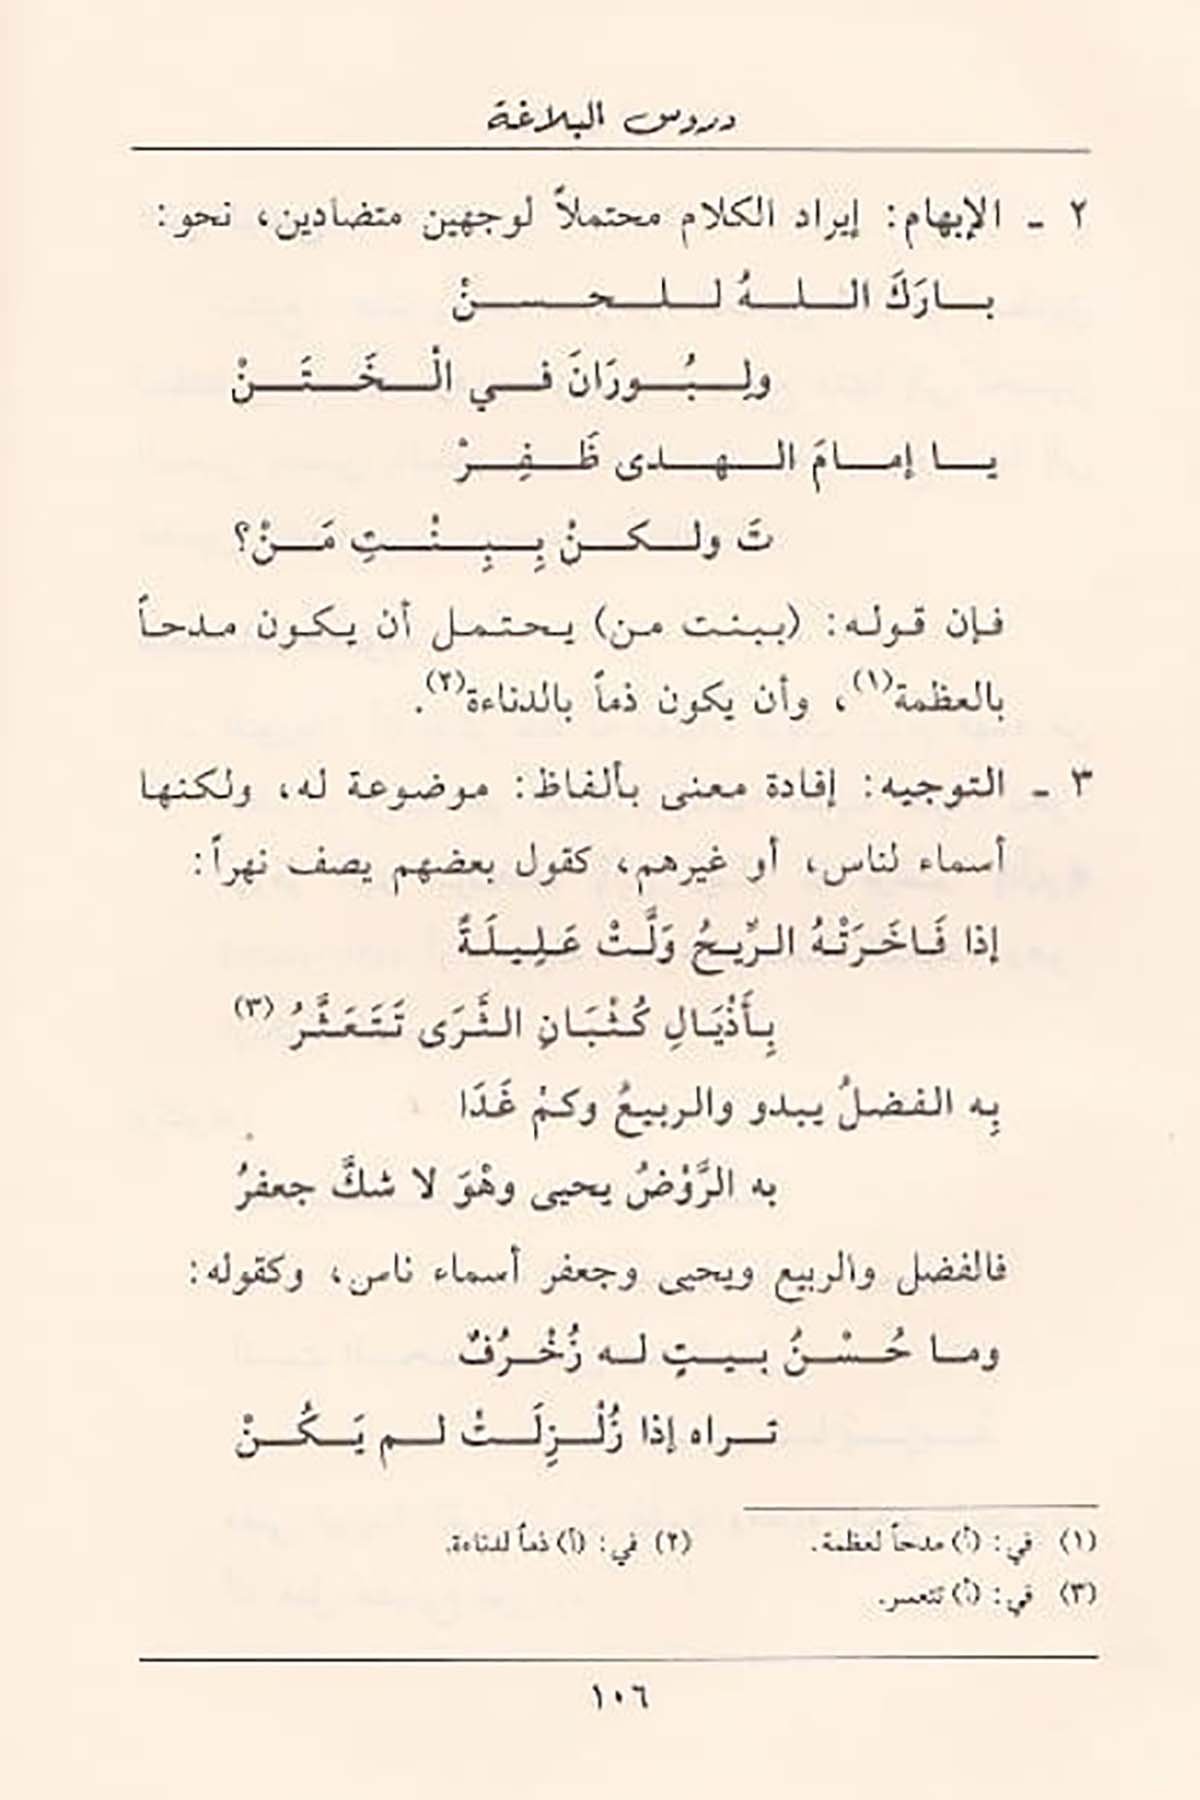 دروس البلاغة
٢ ـ الإبهام: إيراد الكلام محتملاً لوجهين متضادين، نحو:
بـارَكَ الـلـهُ لـلـحـسـنْ
ولِـبُـورَانَ فـي الْـخَـتَـنْ
يـا إمـامَ الـهـدى ظَـفِـرْ
تَ ولـكـنْ بِـبِـنْـتِ مَـنْ؟
فـإن قـولـه: (بـبـنـت مـن) يـحـتـمـل أن يـكـون مـدحـاً
بالعظمة(١)، وأن يكون ذماً بالدناءة(٢).
٣ ـ التوجيه: إفادة معنى بألفاظ: موضوعة له، ولكنها
أسماء لناس، أو غيرهم، كقول بعضهم يصف نهراً:
إذا فَـاخَـرَتْـهُ الـرِّيـحُ وَلَّـتْ عَـلِـيـلَـةً
بِـأَذْيَـالِ كُـثْـبَـانِ الـثَّـرَى تَـتَـعَـثَّـرُ (٣)
بِه الفضلُ يبدو والربيعُ وكمْ غَدَا
به الرَّوْضُ يحيى وهْوَ لا شكَّ جعفرُ
فالفضل والربيع ويحيى وجعفر أسماء ناس، وكقوله:
ومـا حُـسْـنُ بـيـتٍ لـه زُخْـرُفٌ
تـراه إذا زُلْـزِلَـتْ لـم يَـكُـنْ
(١) في: (أ) مدحاً لعظمة. (٢) في: (أ) ذماً لدناءة.
(٣) في: (أ) تتعسر.
١٠٦